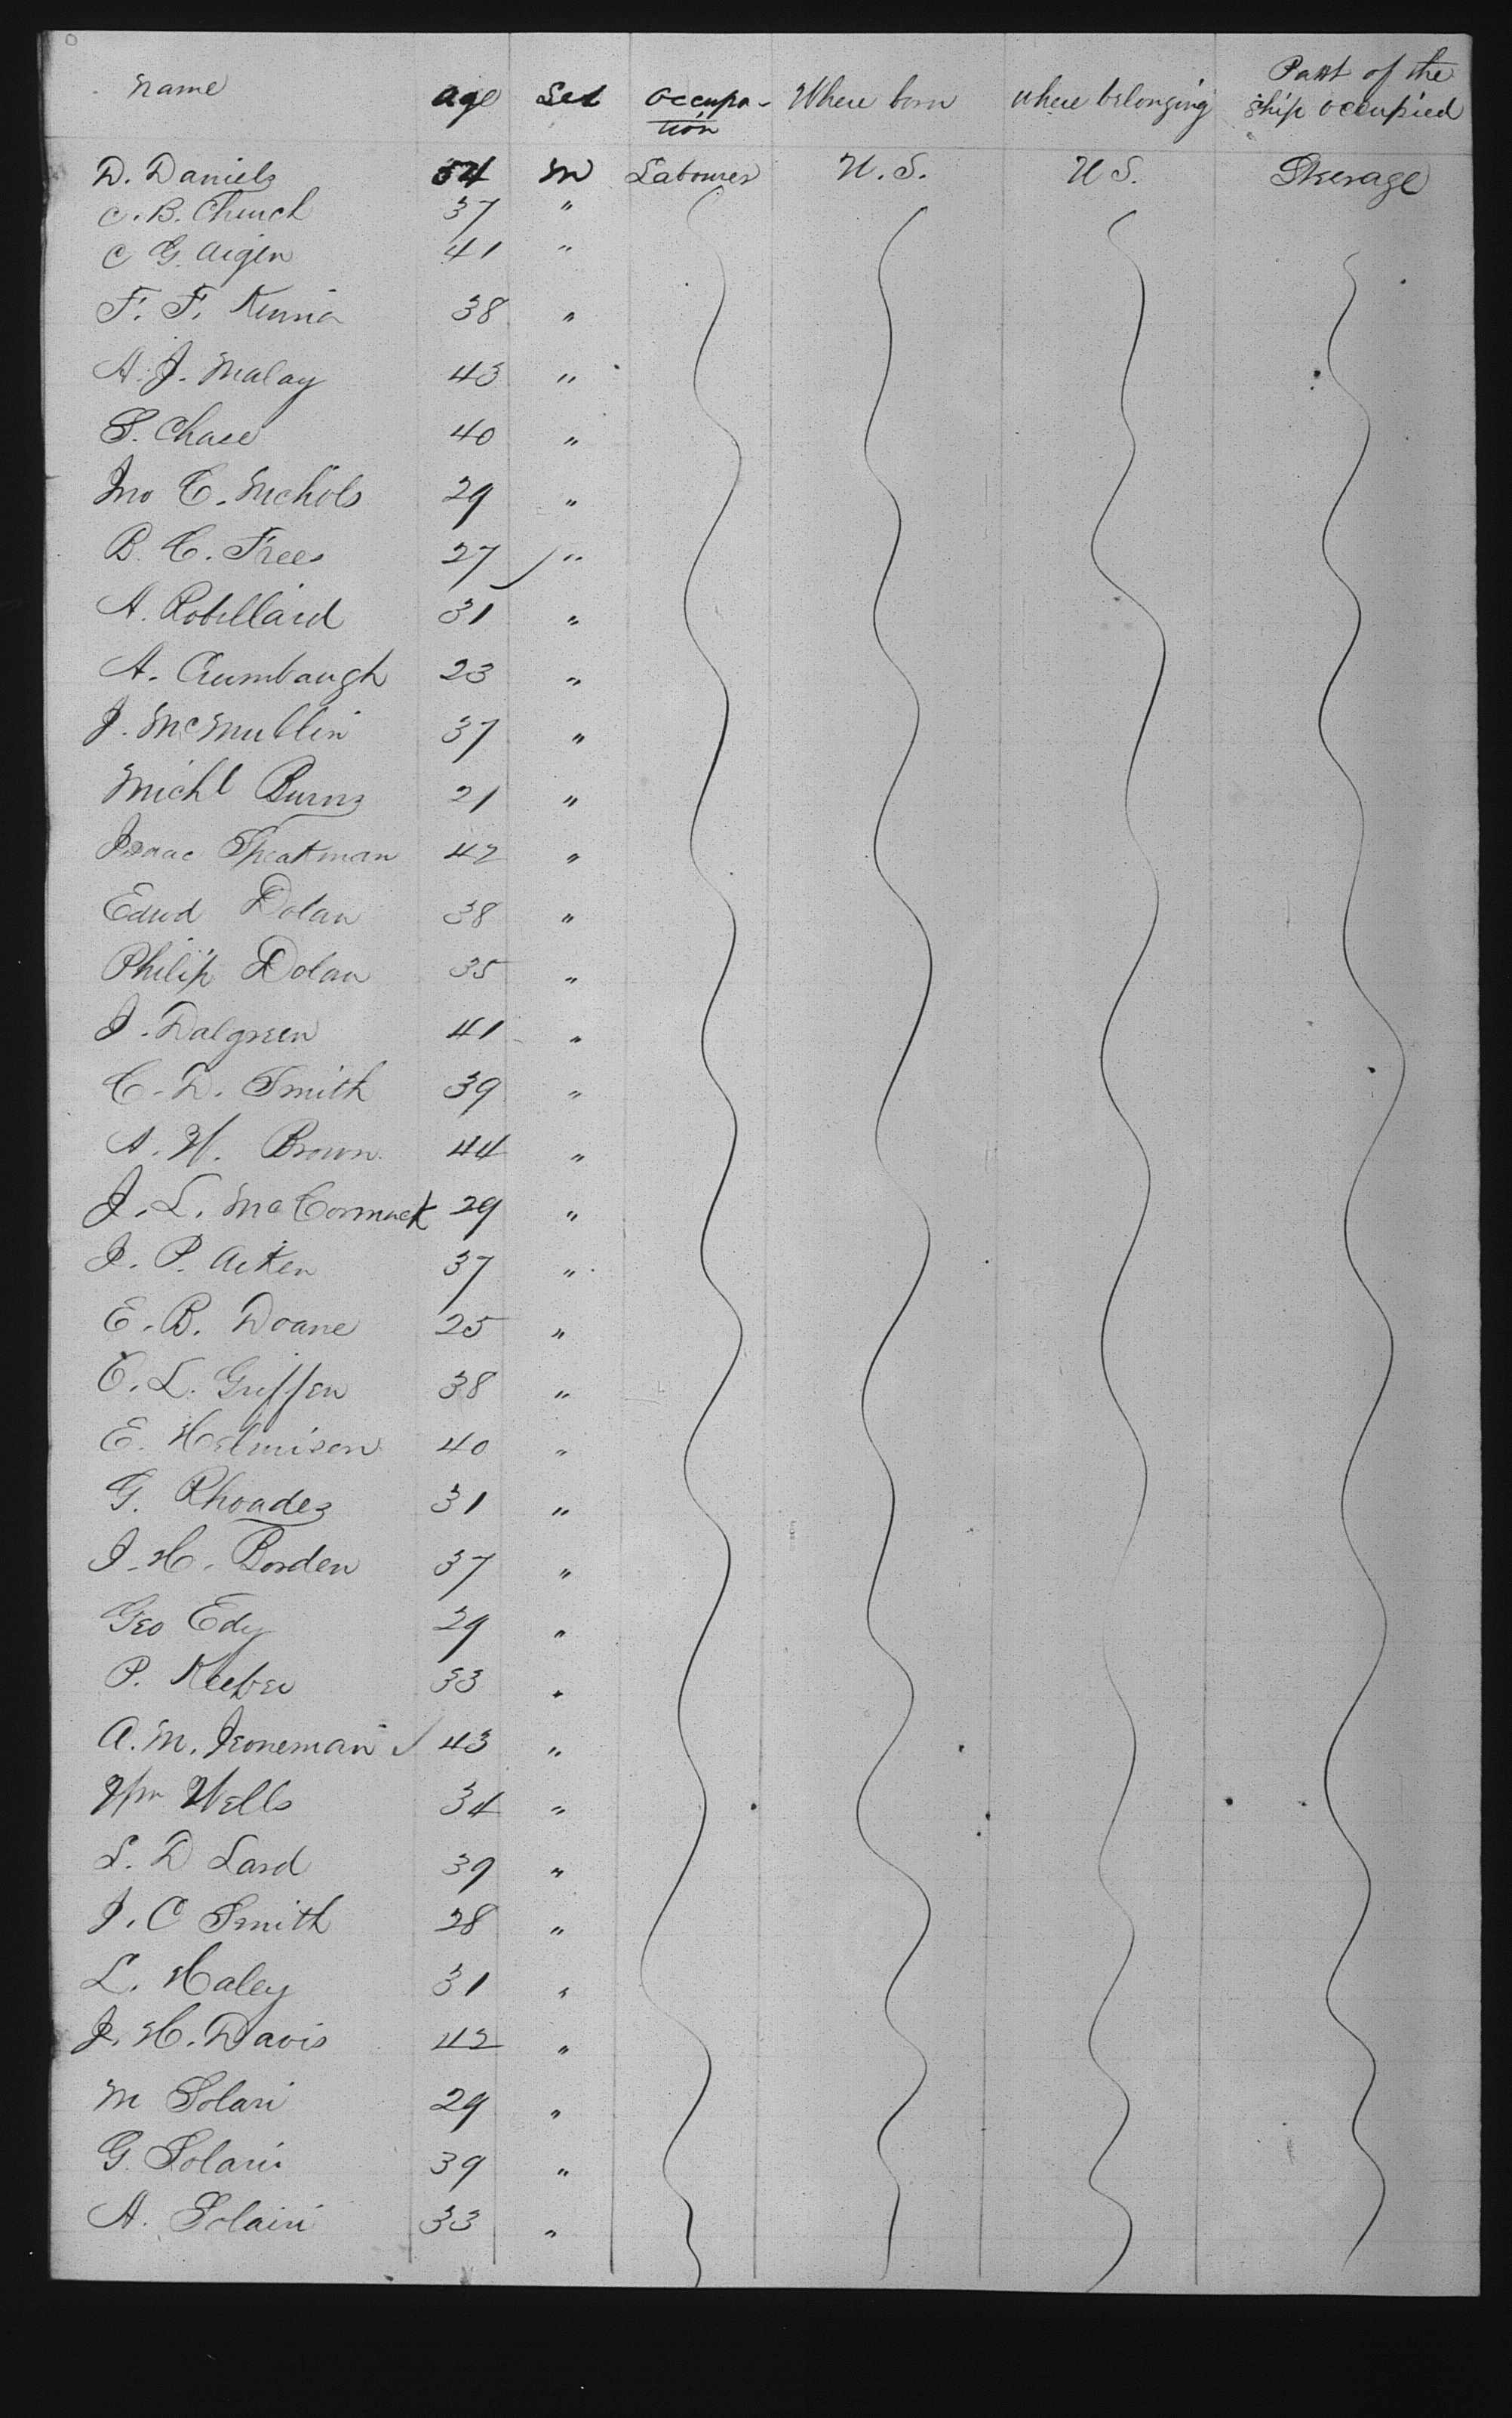 Name Age Sex Occupa- Where born where belonging Part of the
tion ship occupied
D. Daniels 54 M Labourer U.S. U S. Steerage
C. B. Church 37 "
C G. Aigen 41 "
F. F. 38 "
A. J. Malay 43 "
S. Chase 40 "
Jno C. Nichols 29 "
B. C. Frees 27 "
A. Robillard 31 "
A. Crumbaugh 23 "
J. McMullin 37 "
Michl Burns 21 "
Isaac Theakman 42 "
Edwd Dolan 38 "
Philip Dolan 35 "
J. Dalgreen 41 "
C. D. Smith 39 "
A. W. Brown 44 "
J. L. McCormack 29 "
J. P. Aiken 37 "
E. B. Doane 25 "
C. L. Griffen 38 "
E. 40 "
G. Rhoades 31 "
J. H. Borden 37 "
Geo Edy 29 "
P. Keefer 33 "
A. M. 43 "
Wm Wells 34 "
L. D Lard 39 "
J. C Smith 28 "
L. Haley 31 "
J. H. Davis 42 "
M Solari 29 "
G. Solari 39 "
A. Solari 33 "